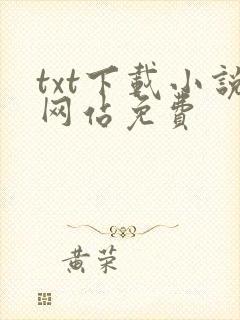 txt下載小說
网佔免費
黄荣